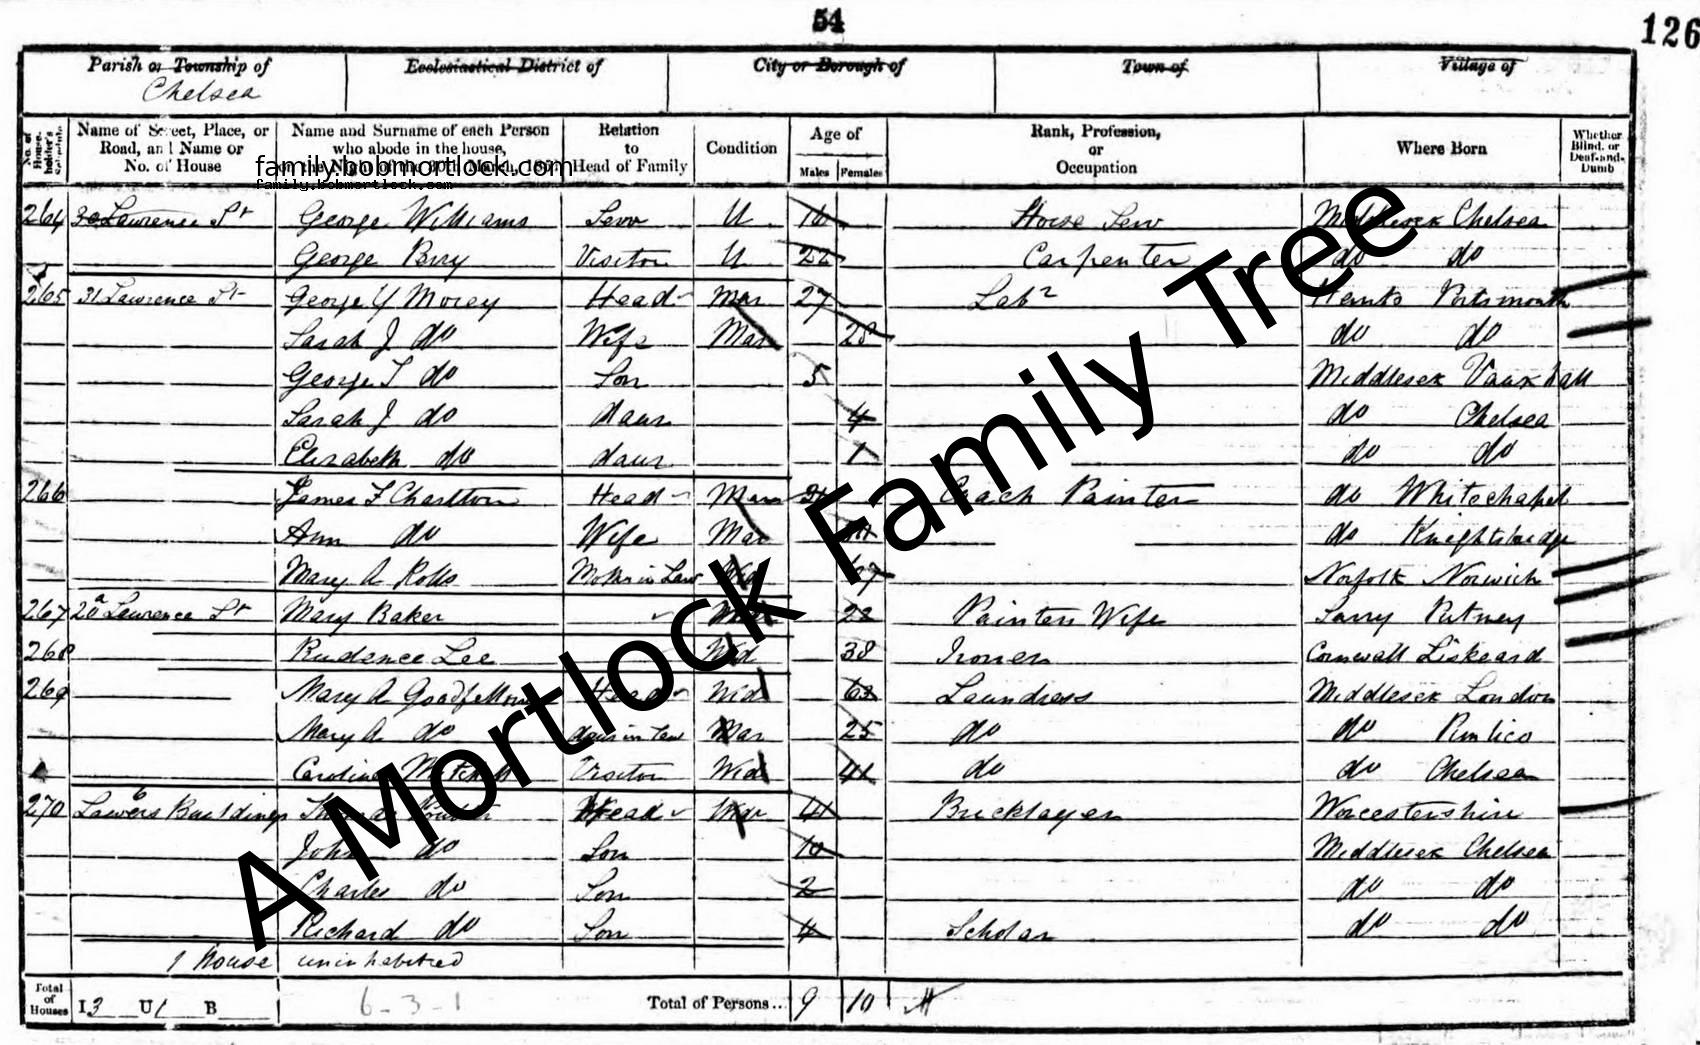 54
126
Parish or Township of Ecclesiastical District of City or Borough of Town of Village of
Chelsea
No. of House-holder's Schedule Name of Street, Place, or Road, and Name or No. of House Name and Surname of each Person who abode in the house, Relation to Head of Family Condition Age of Males Females Rank, Profession, or Occupation Where Born Whether Blind, or Deaf-and-Dumb
family.bobmortlock.com
family.bobmortlock.com
264 30 Lawrence St George Williams Serv U 16 House Serv Middlesex Chelsea
George Berry Visitor U 22 Carpenter do do
265 31 Lawrence St George Y Morey Head Mar 27 Labr Hants Portsmouth
Sarah J do Wife Mar 28 do do
George T do Son 5 Middlesex Vauxhall
Sarah J do daur 4 do Chelsea
Elizabeth do daur 1 do do
266 James F Charlton Head Mar Coach Painter do Whitechapel
Ann do Wife Mar do Knightsbridge
Mary A Rolls Mother in Law Wid 67 Norfolk Norwich
267 20a Lawrence St Mary Baker 22 Painters Wife Surry Putney
268 Prudence Lee Wid 38 Ironer Cornwall Liskeard
269 Mary A Goodfellow Head Wid 63 Laundress Middlesex London
Mary A do daur in Law Mar 25 do do Pimlico
Caroline Mitchell Visitor Wid 41 do do Chelsea
270 6 Lawers Buildings Head Wdr 41 Bricklayer Worcestershire
John do Son 10 Middlesex Chelsea
Charles do Son 2 do do
Richard do Son 4 Scholar do do
1 House uninhabited
Total of Houses I 3 U 1 B 6-3-1 Total of Persons... 9 10
A Mortlock Family Tree